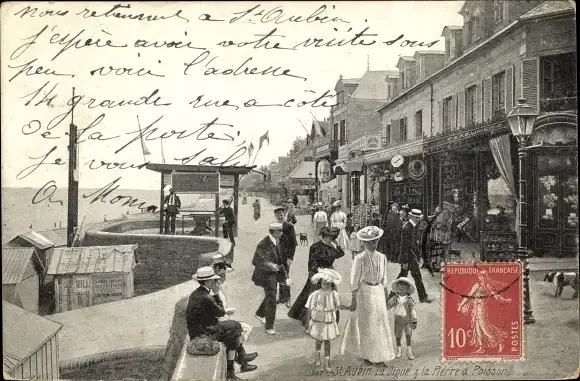 Nous retournent a St Aubin
j'espère avoir votre visite sous
peu voici l'adresse
14 grande rue, a côté
de la porte.
je vous
St AUBIN. La Digue & la Pierre à Poisson.
RÉPUBLIQUE FRANÇAISE
10c
POSTES